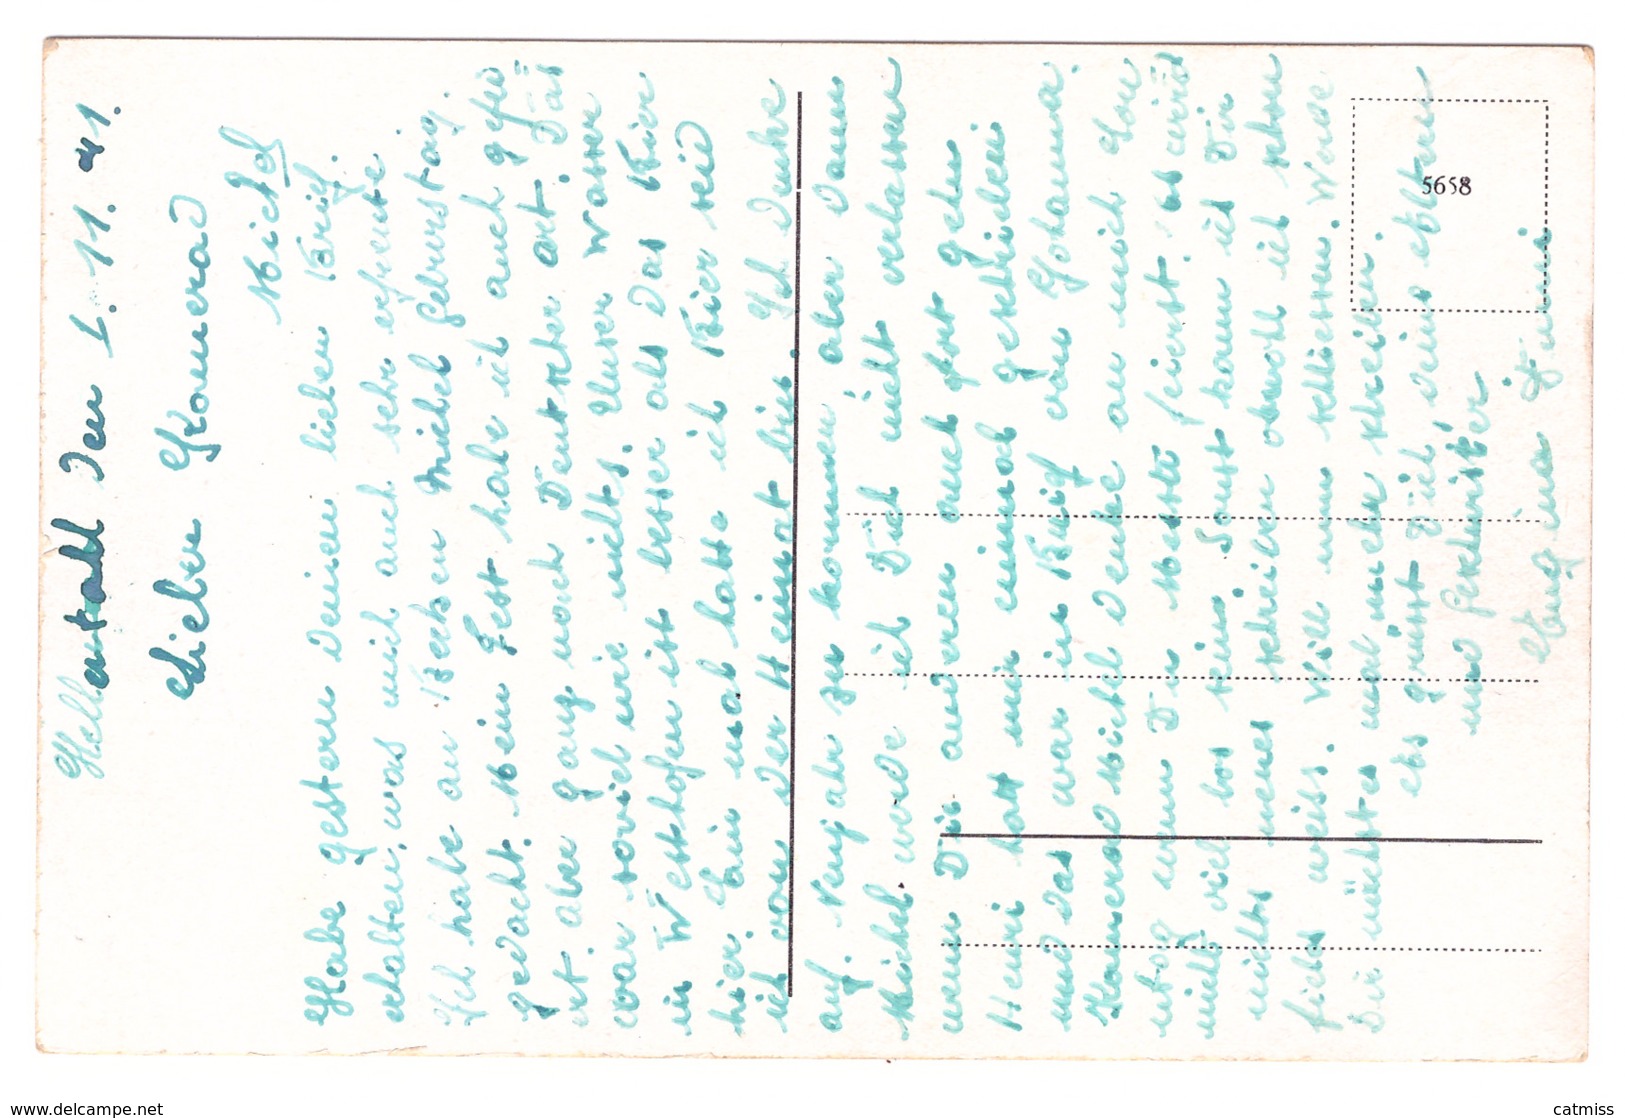 Hellenthall Den 2. 11. 41.
Lieber Kamerad
Michel
Habe gestern Deinen lieben Brief
erhalten, was mich auch sehr erfreute
Ich habe an Michel geburstag
Gedacht. Mein Fest habe ich auch gefei
ert. aber ganz nach Deutscher art. Das
war soviel wie nichts. Unser Wasser
in Westhofen ist besser als das Bier
hier. Ein mal hatte ich Bier seid
ich von der Heimat bin. Ich Denke
auf Neujahr zu kommen aber Dann
Michel werde ich Dich nicht verlassen
wenn Die anderen auch fort gehn
Henri hat mir einmal geschrieben
und das war im Brief von Johanna.
Kamerad Michel denke an mich
wenn Du Messti feierst. es wird
nicht viel los sein Sonst kann ich Dir
nichts neues schreiben obwohl ich schon
fieles weiss. Will nun schliesen. Werde
Dir nächstes mal mehr schreiben
Es grüst Dich, deine Eltern
und Geschwister